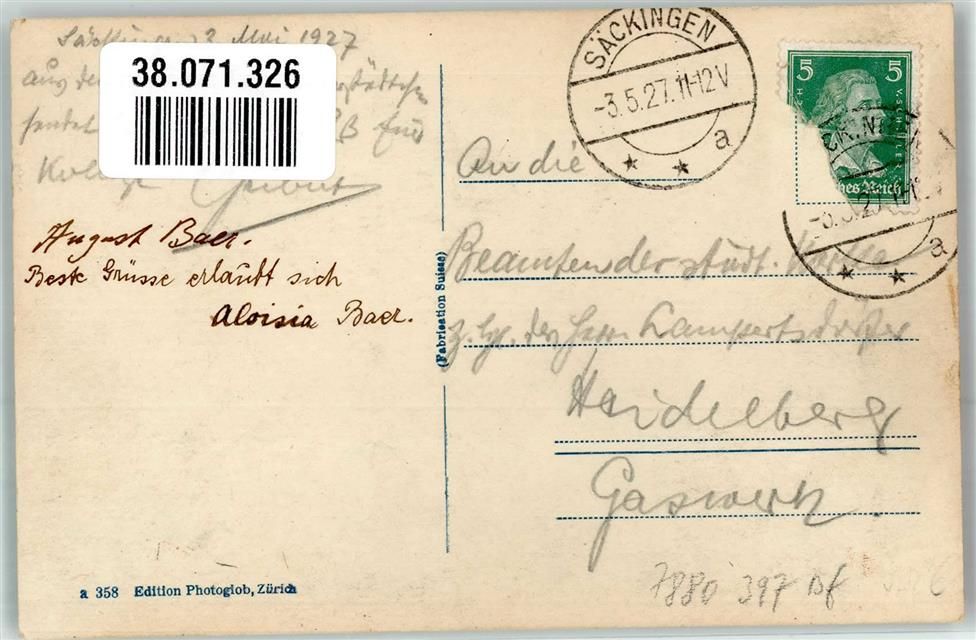 Säckingen 3 Mai 1927
aus dem
sendet
Kollege
38.071.326
August Baer.
Beste Grüsse erlaubt sich
Aloisia Baer.
(Fabrication Suisse)
SÄCKINGEN
-3.5.27.11-12V
a
5 5
V. SCHILLER
ches Reich
a
An die
Beamten der städt.
z. Hd. des Herrn
Heidelberg
Gaswerk
a 358 Edition Photoglob, Zürich
7880 397 Bf